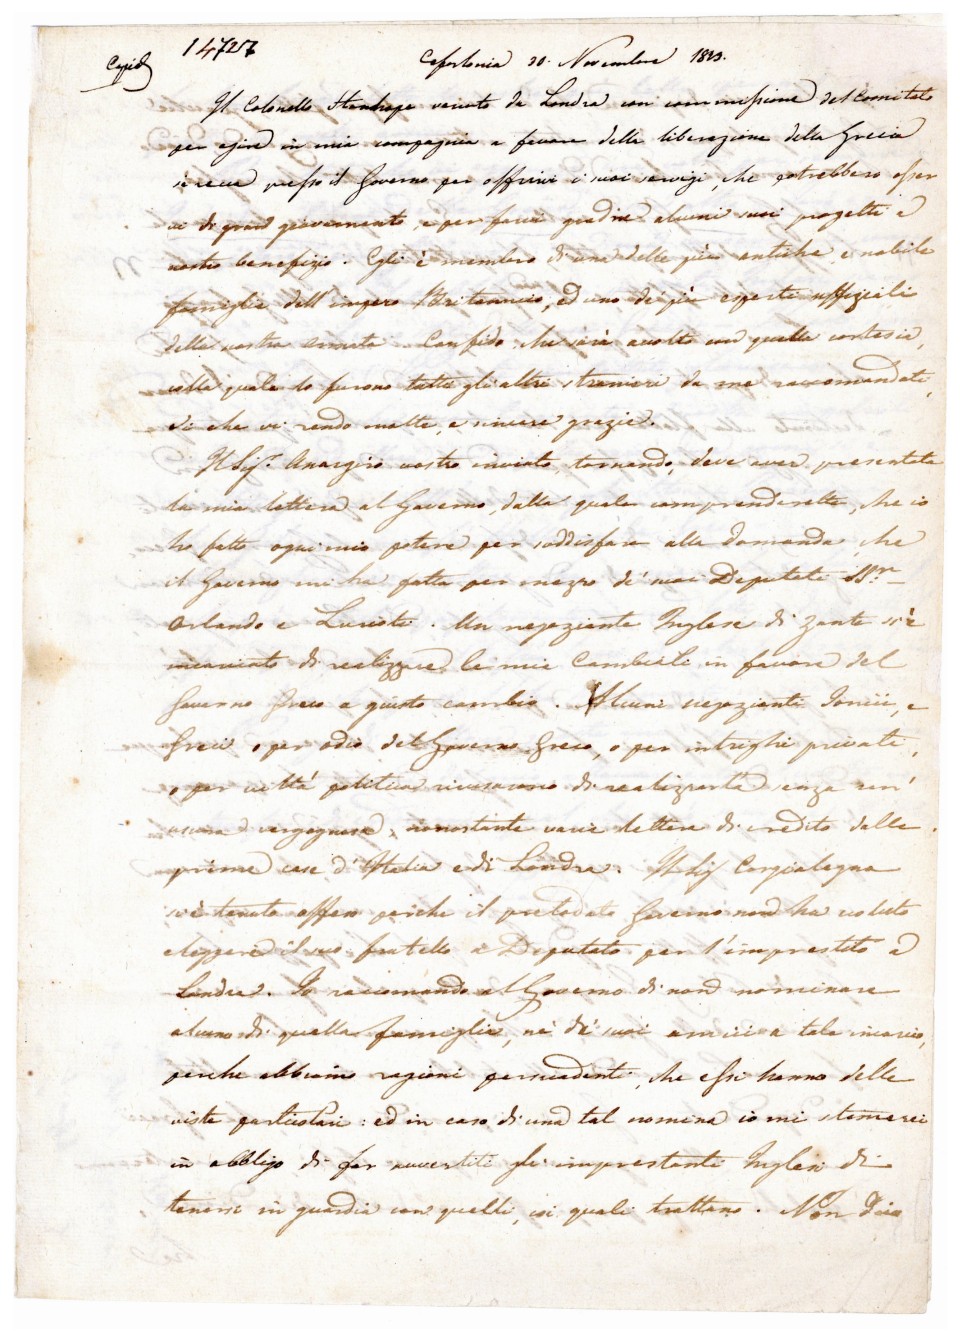 14727
Copia
Cefalonia 30. Novembre 1823.
Il Colonello Stanhope venuto da Londra con commissione del Comitato
per agire in mia compagnia a favore della liberazione della Grecia
si reca presso il Governo per offrirvi i suoi servigi, che potrebbero esser
vi di gran giovamento, e per farvi gradire alcuni suoi progetti a
vostro benefizio. Egli è membro di una delle più antiche, e nobile
famiglie dell'impero Britannico, ed uno de' più esperti uffiziali
della nostra armata. Confido che sarà accolto con quella cortesia,
colla quale lo furono tutti gli altri stranieri da me raccomandati,
di che vi rendo molte, e sincere grazie.
Il Sig.r Anargiro vostro inviato, tornando, deve aver presentata
la mia lettera al Governo, dalla quale comprenderette, che io
ho fatto ogni mio potere per soddisfare alla domanda, che
il Governo mi ha fatta per mezzo de' suoi Deputati SS.ri
Orlando e Luriotti. Un negoziante Inglese di Zante s'è
incaricato di realizzare le mie Cambiali in favore del
Governo Greco a giusto cambio. Alcuni negozianti Ionii, e
Greci o per odio del Governo Greco, o per intrighi privati,
o per viltà politica ricusarono di realizzarla senza un'
usura vergognosa, nonostante varie lettere di credito delle
prime case d'Italia e di Londra. Il Sig.r Corgialegna
s'è tenuto offeso perchè il prelodato Governo non ha voluto
eleggere il suo fratello a Deputato per l'imprestito a
Londra. Io raccomando al Governo di non nominare
alcuno di quella famiglia, nè de' suoi amici a tale incarico,
perchè abbiamo ragioni persuadenti, che essi hanno delle
viste particolari: ed in caso di una tal nomina io mi stimerei
in obbligo di far avvertiti gli imprestanti Inglesi di
tenersi in guardia con quelli, coi quali trattano. Non